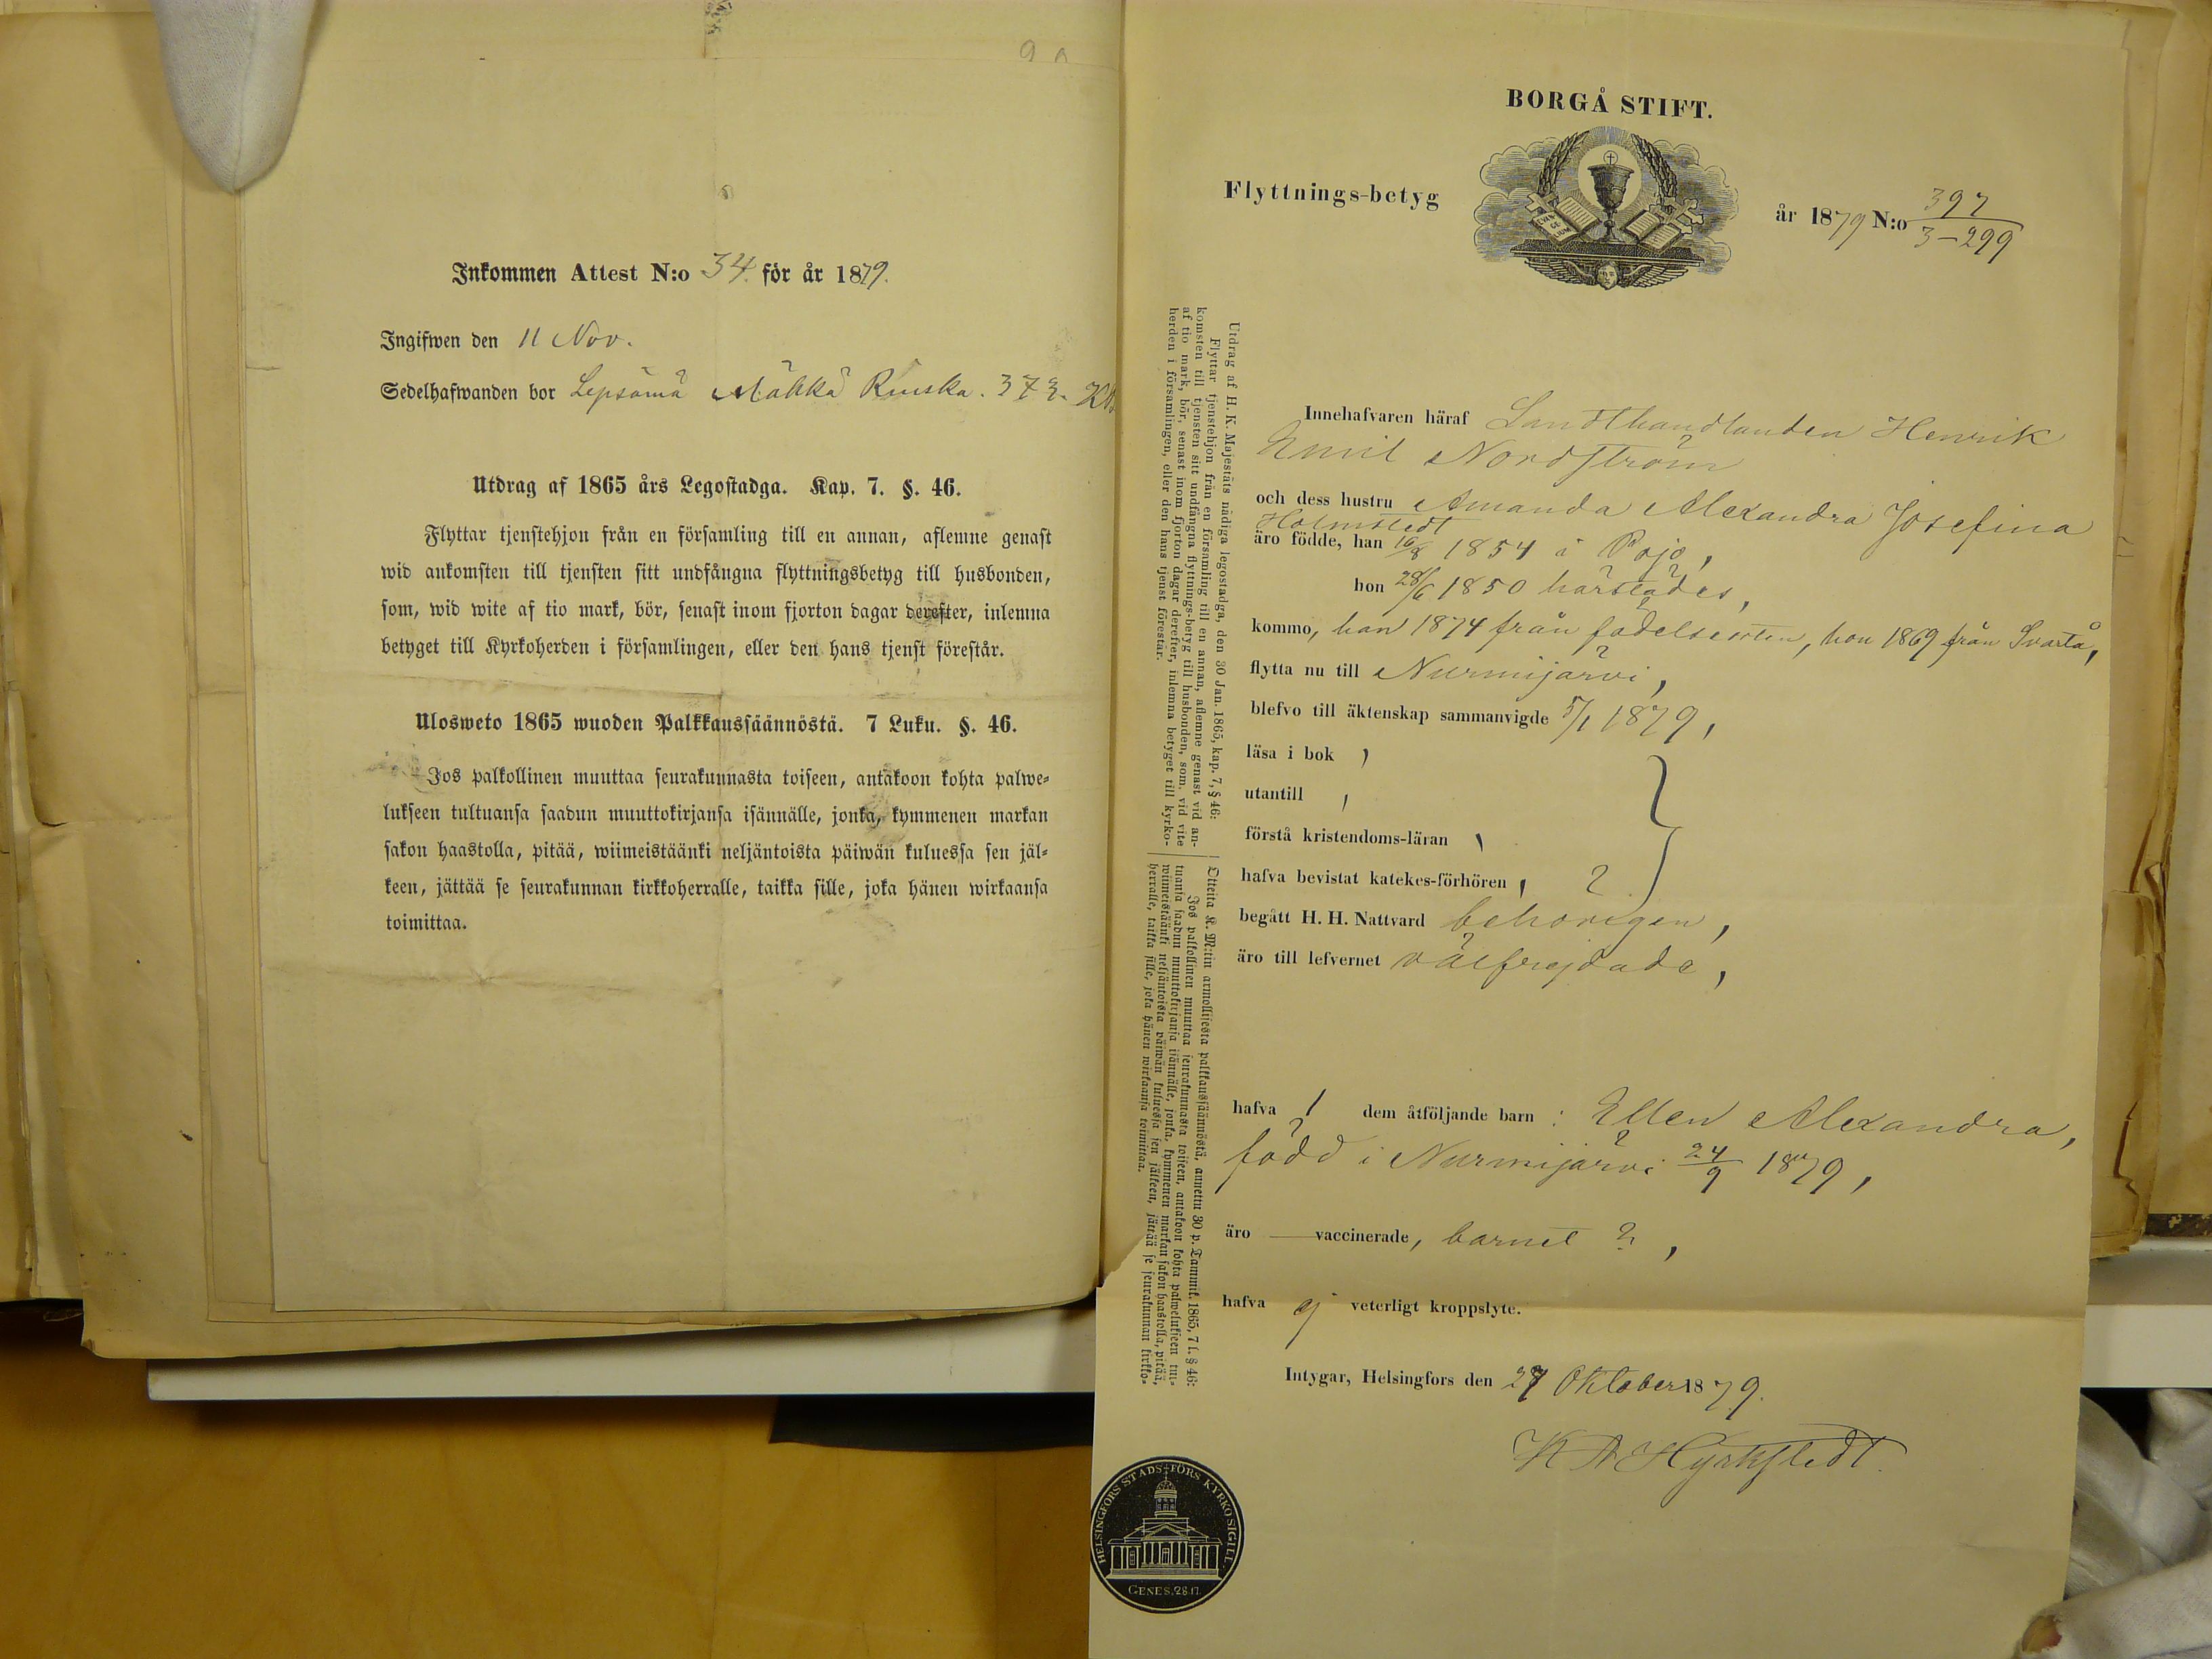 Inkommen Attest N:o 34. för år 1879.
Ingifwen den 11 Nov.
Sedelhafwanden bor Lepsämä Mäkkä Ruuska. 373.
Utdrag af 1865 års Legostadga. Kap. 7. §. 46.
Flyttar tjenstehjon från en församling till en annan, aflemne genast
wid ankomsten till tjensten sitt undfångna flyttningsbetyg till husbonden,
som, wid wite af tio mark, bör, senast inom fjorton dagar derefter, inlemna
betyget till Kyrkoherden i församlingen, eller den hans tjenst förestår.
Ulosweto 1865 wuoden Palkkaussäännöstä. 7 Luku. §. 46.
Jos palkollinen muuttaa seurakunnasta toiseen, antakoon kohta palwe-
lukseen tultuansa saadun muuttokirjansa isännälle, jonka, kymmenen markan
sakon haastolla, pitää, wiimeistäänki neljäntoista päiwän kuluessa sen jäl-
keen, jättää se seurakunnan kirkkoherralle, taikka sille, joka hänen wirkaansa
toimittaa.
BORGÅ STIFT.
EVAN
GE
LIUM
Flyttnings-betyg
år 1879 N:o 397
3-299
Utdrag af H. K. Majestäts nådiga legostadga, den 30 Jan. 1865, kap. 7, § 46:
Flyttar tjenstehjon från en församling till en annan, aflemne genast vid an-
komsten till tjensten sitt undfångna flyttnings-betyg till husbonden, som, vid vite
af tio mark, bör, senast inom fjorton dagar derefter, inlemna betyget till kyrko-
herden i församlingen, eller den hans tjenst förestår.
Otteita K. M:tin armollisesta palkkaussäännöstä, annettu 30 p. Tammik. 1865, 7 l. § 46:
Jos palkollinen muuttaa seurakunnasta toiseen, antakoon kohta palwelukseen tul-
tuansa saadun muuttokirjansa isännälle, jonka, kymmenen markan sakon haastolla, pitää,
wiimeistäänki neljäntoista päiwän kuluessa sen jälkeen, jättää se seurakunnan kirkko-
herralle, taikka sille, joka hänen wirkaansa toimittaa.
Innehafvaren häraf Landthandlanden Henrik
Emil Nordström
och dess hustru Amanda Alexandra Josefina
Holmstedt
äro födde, han 16/8 1854 i Pojo,
hon 28/6 1850 härstädes,
kommo, han 1874 från födelseorten, hon 1869 från Svartå,
flytta nu till Nurmijärvi,
blefvo till äktenskap sammanvigde 5/1 1879,
läsa i bok )
utantill ,
förstå kristendoms-läran
hafva bevistat katekes-förhören , ?
begått H. H. Nattvard behörigen,
äro till lefvernet välfrejdade,
hafva 1 dem åtföljande barn : Ellen Alexandra,
född i Nurmijärvi 24/9 1879,
äro — vaccinerade, barnet ?,
hafva ej veterligt kroppslyte.
Intygar, Helsingfors den 27 Oktober 1879.
K A Hyrkstedt.
HELSINGFORS STADS-FÖRS KYRKOSIGILL.
GENES. 28.17.